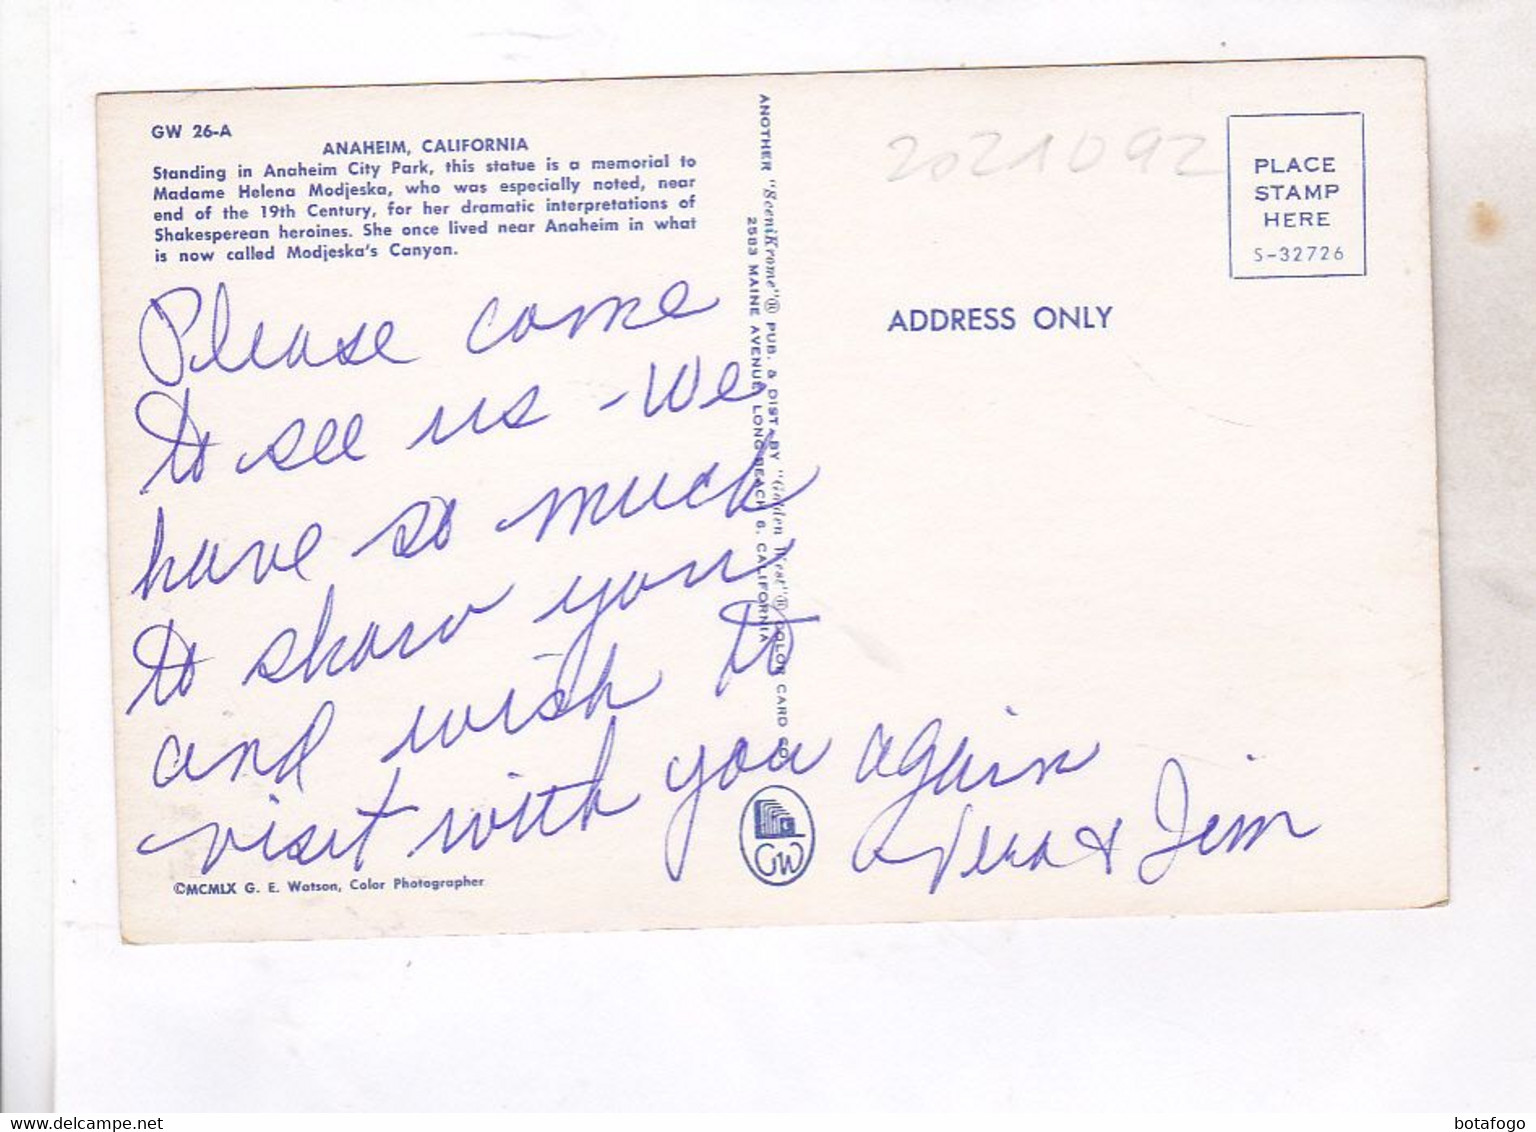 GW 26-A
ANAHEIM, CALIFORNIA
Standing in Anaheim City Park, this statue is a memorial to
Madame Helena Modjeska, who was especially noted, near
end of the 19th Century, for her dramatic interpretations of
Shakesperean heroines. She once lived near Anaheim in what
is now called Modjeska's Canyon.
Please come
to see us - We
have so much
to show you
and wish to
visit with you again
Vera + Jim
©MCMLX G. E. Watson, Color Photographer
ANOTHER "SceniKrome"® PUB. & DIST. BY "Golden West"® COLOR CARD CO.
2583 MAINE AVENUE, LONG BEACH 6, CALIFORNIA
GW
2021092
PLACE
STAMP
HERE
S-32726
ADDRESS ONLY
botafogo